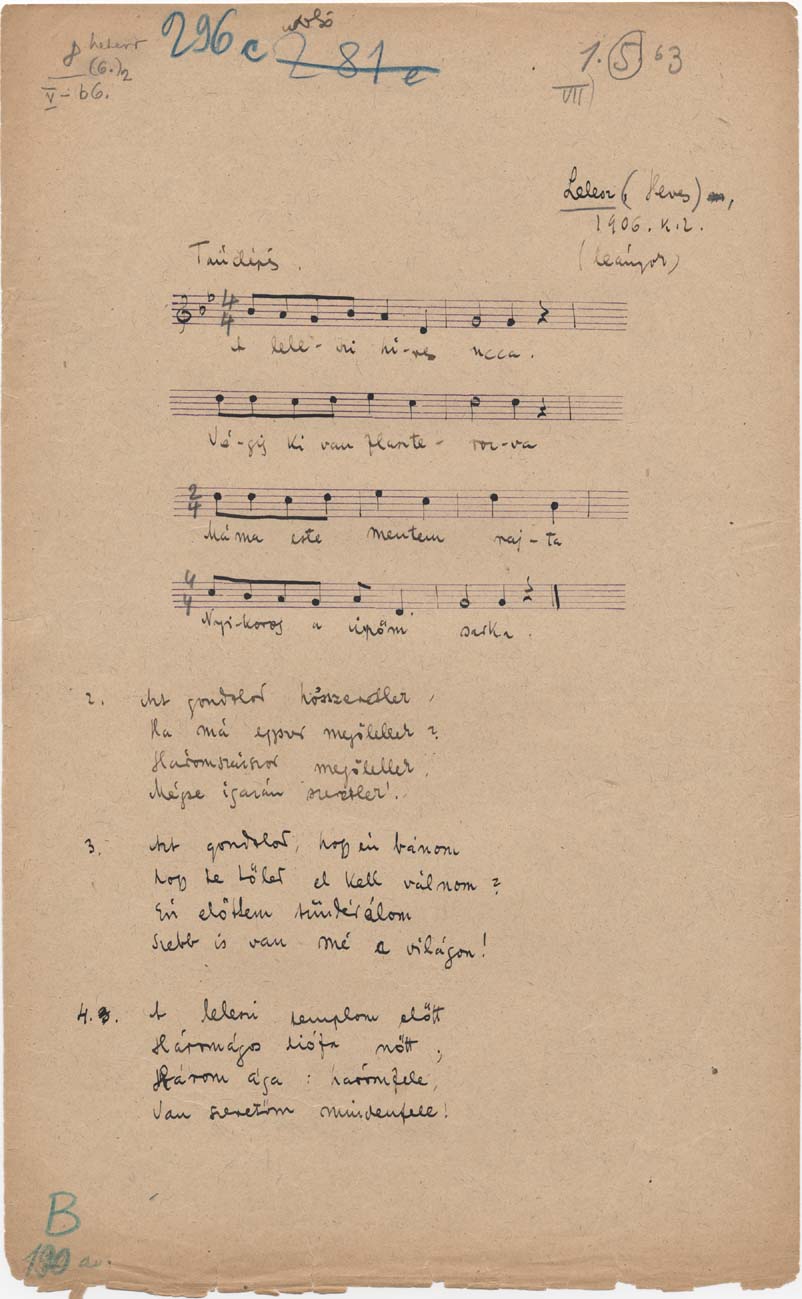 8
(6.)2
V – 66.
296 c
281 e
1. 5 63
VII)
Lelesz (Heves),
1906. K.Z.
(leányok)
4 4
A lele-szi hí-res ucca.
Vé-gij ki van plante-roz-va
2 4
Máma este mentem raj-ta
4 4
Nyi-korog a cipőm sarka.
2. Azt gondolod hősszeretlek,
Ha má egyszer megölellek?
Háromszászor megölellek,
Mégse igazán szeretlek!
3. Azt gondolod, hogy én bánom
hogy te tőled el kell válnom?
Én előttem tündérálom
Szebb is van mé a világon!
4. 3. A leleszi templom előtt
Háromágos diófa nőtt,
Három ága: háromfele,
Van szeretőm mindenfele!
B
190 a.